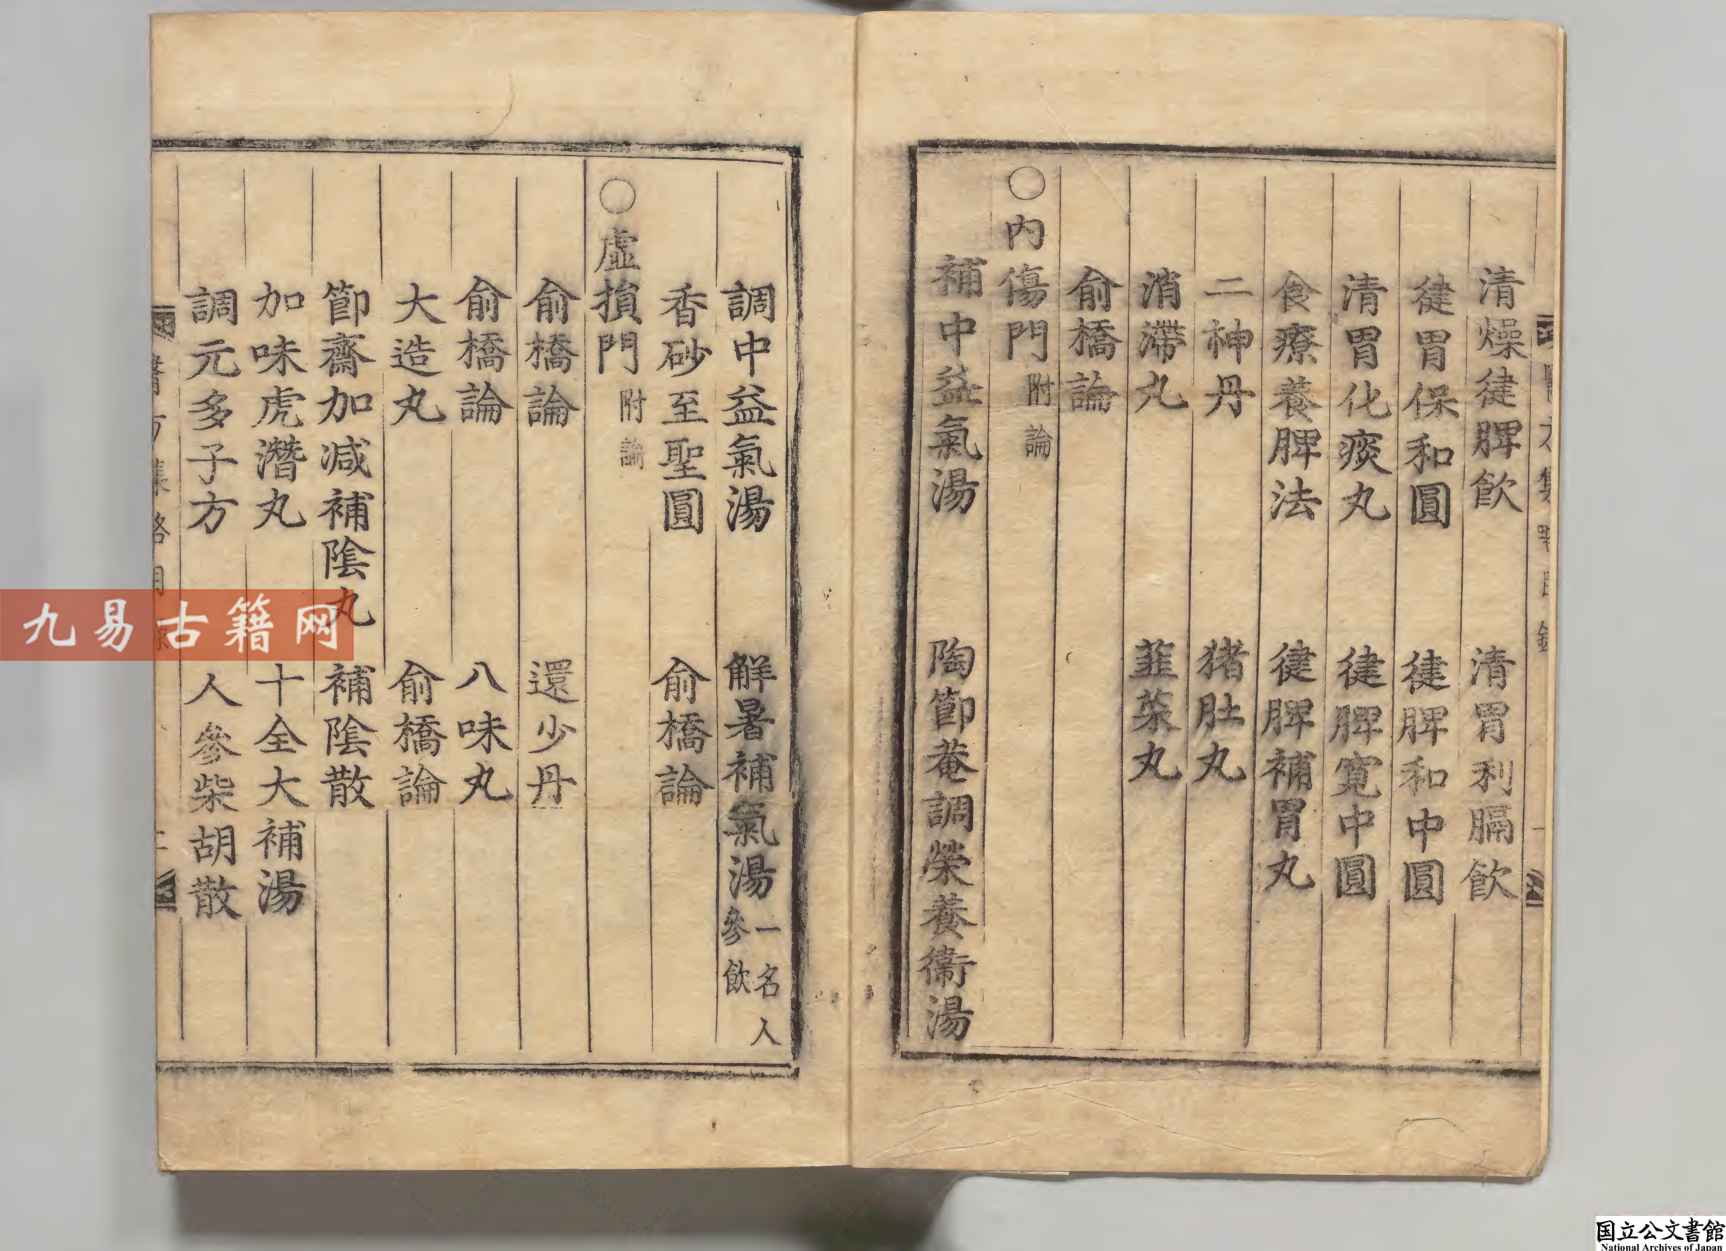 清燥健脾飲 清胃利膈飲
健胃保和圓 健脾和中圓
清胃化痰丸 健脾寬中圓
食療養脾法 健脾補胃丸
二神丹 猪肚丸
消滯丸 韮菜丸
俞橋論
○內傷門附論
補中益氣湯 陶節菴調榮養衛湯
調中益氣湯 解暑補氣湯一名人參飲
香砂至聖圓 俞橋論
○虛損門附論
俞橋論 還少丹
俞橋論 八味丸
大造丸 俞橋論
節齋加減補陰丸 補陰散
加味虎潛丸 十全大補湯
調元多子方 人參柴胡散
醫方集略目錄
九易古籍网
国立公文書館
National Archives of Japan